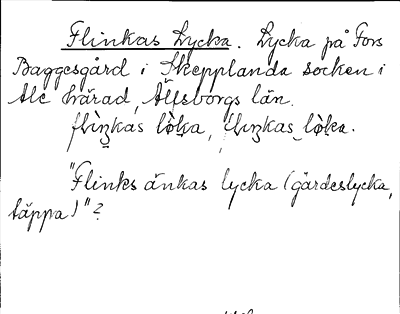 Flinkas Lycka. Lycka på Fors
Baggesgård i Skepplanda socken i
Ale härad, Älfsborgs län.
flìŋkas lòka, flìŋkas lòka.
"Flinks änkas lycka (gärdeslycka,
täppa)"?